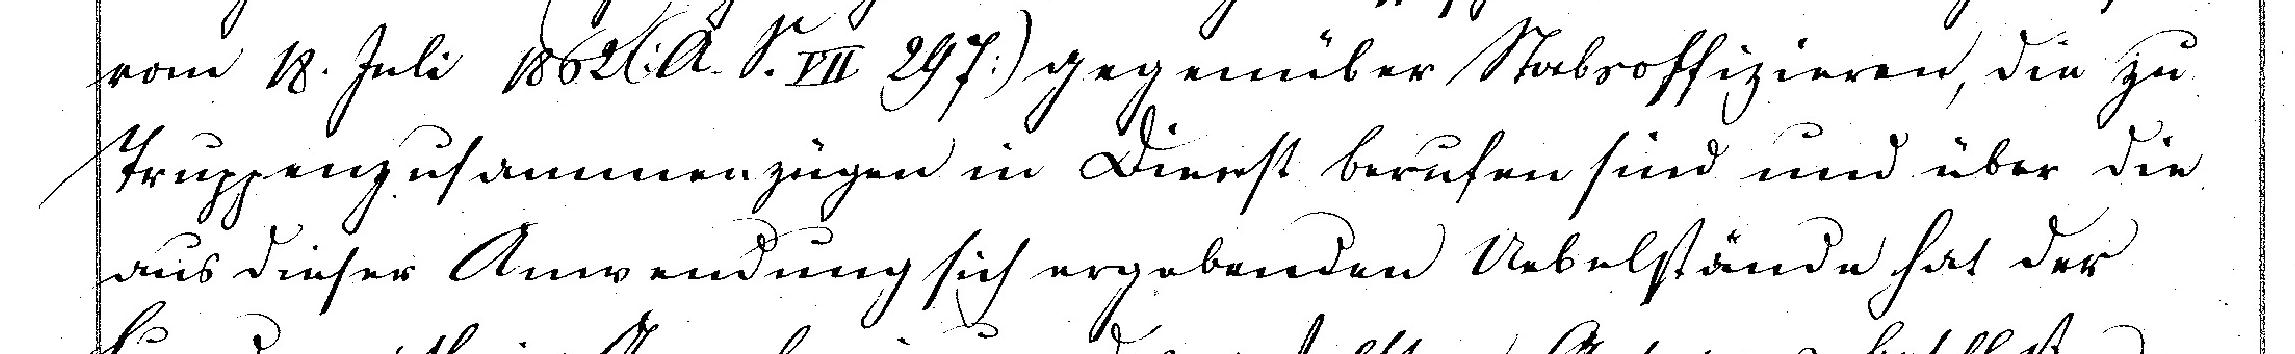 vom 18. Juli 1862 (: A. S. VII 297 :) gegenüber Stabsoffizieren, die zu
Truppenzusammenzügen in Dienst berufen sind und über die
aus dieser Anwendung sich ergebenden Uebelstände hat der